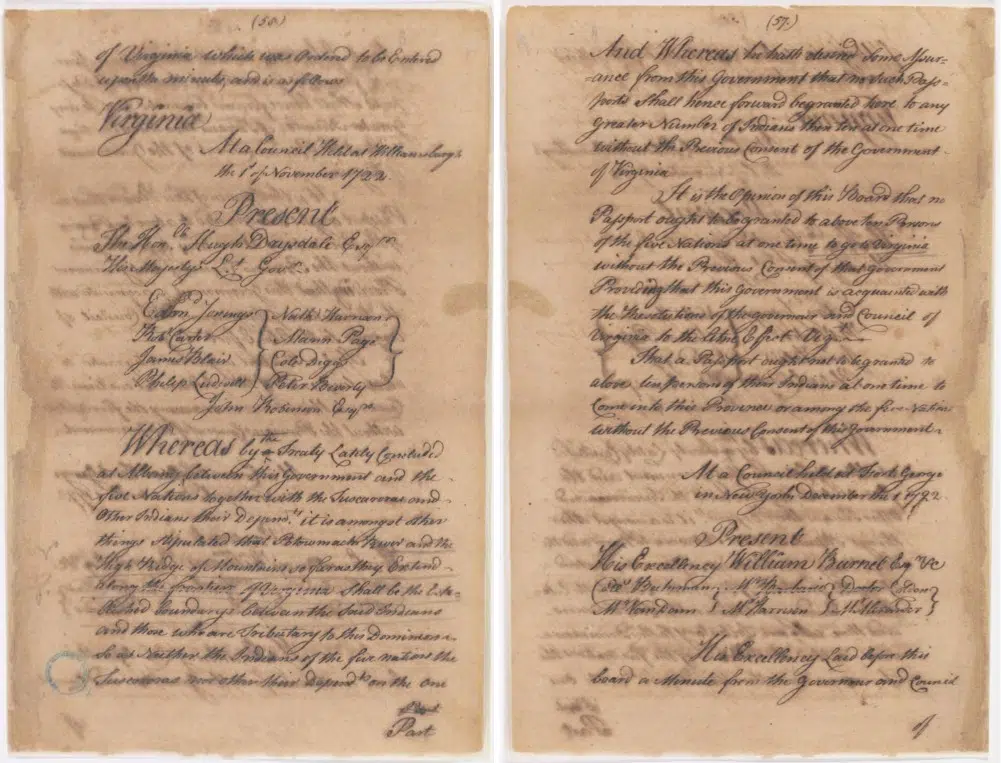 (58.)
of Virginia which was Ordered to be Entered
upon the minutes, and is as follows
Virginia
At a Council Held at Williamsburgh
the 1st of November 1722
Present
The Hon.ble Hugh Drysdale Esqr
His Majestys Lt. Govr.
Edmd Jenings
Robt Carter
James Blair
Philip Ludwell
Nathl Harrison
Mann Page
Cole Diggs
Peter Beverly
John Robinson Esqrs
Whereas by the Treaty Lately Concluded
at Albany between this Government and the
five Nations together with the Tuscaroras and
Other Indians their Dependts it is amongst other
things stipulated that Potowmack River and the
High Ridge of Mountains so far as they Extend
along the frontiers of Virginia Shall be the Esta-
blished boundarys between the said Indians
and those who are Tributary to this Dominion
So as Neither the Indians of the five nations the
Tuscaroras nor other their Dependts on the one
Part
(57.)
And Whereas he hath desired Some Assur-
ance from this Government that no Such Pass-
ports Shall hence forward be granted here to any
Greater Number of Indians then ten at one time
without the Previous Consent of the Government
of Virginia
It is the Opinion of this Board that no
Passport ought to be granted to above ten Persons
of the five Nations at one time to go to Virginia
without the Previous Consent of that Government
Provided that this Government is acquainted with
the Resolutions of the governour and Council of
Virginia to the like Effect Vizt.
That a Passport ought not to be granted to
above ten persons of their Indians at one time to
Come into this Province or among the five Nations
without the Previous Consent of this Government
At a Council held at Fort George
in New York December the 1 1722
Present
His Excellency William Burnet Esqr &c
Mr VanDam
Mr Harrison
Doctor Colden
Mr Alexander
His Excellency Laid before this
board a Minute from the Governour and Council
of